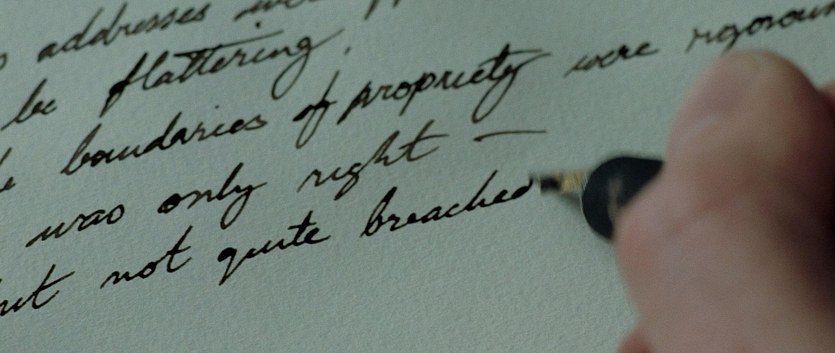 addresses were
be flattering.
boundaries of propriety were rigorous
was only right —
but not quite breached